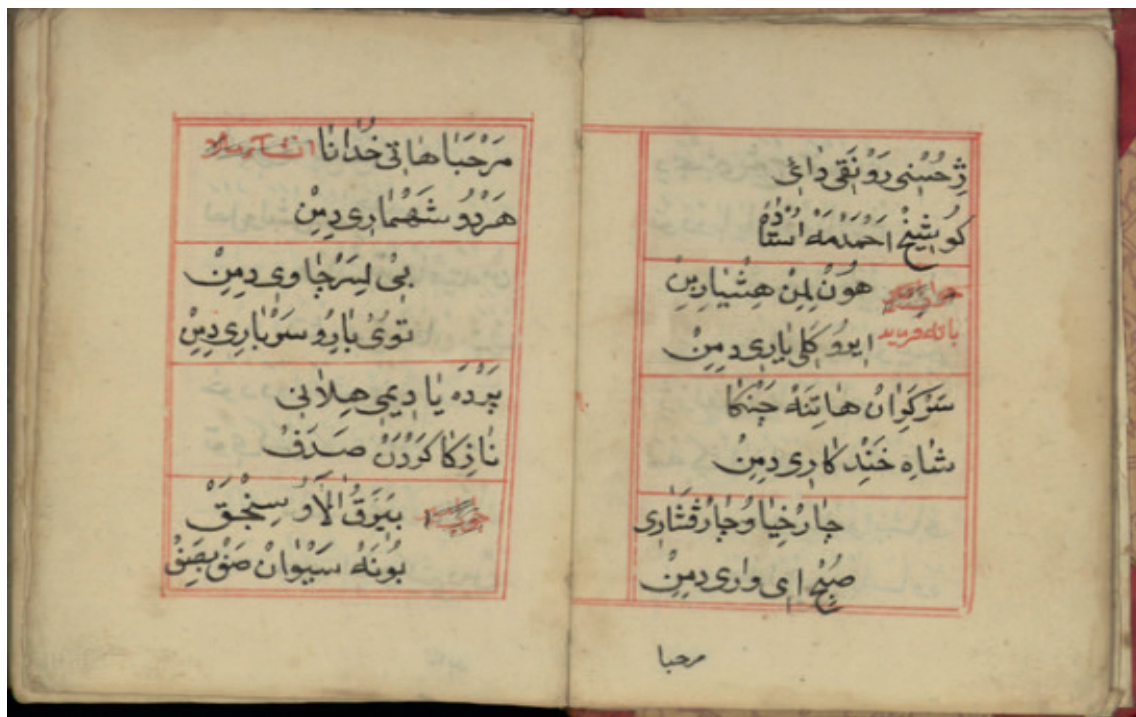 ژِ حُسْنِی رَوْنَقِی دَائِی
کُو شِیخْ اَحْمَدْ مَهْ اُسْتَادَهْ
هُونْ لِمِنْ هِشْیَارِبِنْ
ایرُو کَلِی یَارِی دِمِنْ
سَرْکَوَانْ هَاتِنَهْ جَنْکَا
شَاهِ خَنْدِکَارِی دِمِنْ
چَارْ خِیَا وُ چَارْ
صُبْحِ اِی وَارِی دِمِنْ
مرحبا
مَرْحَبَا هَاتِی خُدَانَا
هَرْدُو شَهْمَارِی دِمِنْ
بَیْ لِسَرْ چَاوِی دِمِنْ
تُوی بَارُو سَرْبَارِی دِمِنْ
پَرْدَه یَا دِیمِی هِلَانِی
نَازِکَا کَرْدَنْ صَدَفْ
بَیْرَقُ اٰلَاوُ سِنْجَقْ
بُونَهْ سَیْوَانْ صَفْ بِصَفْ